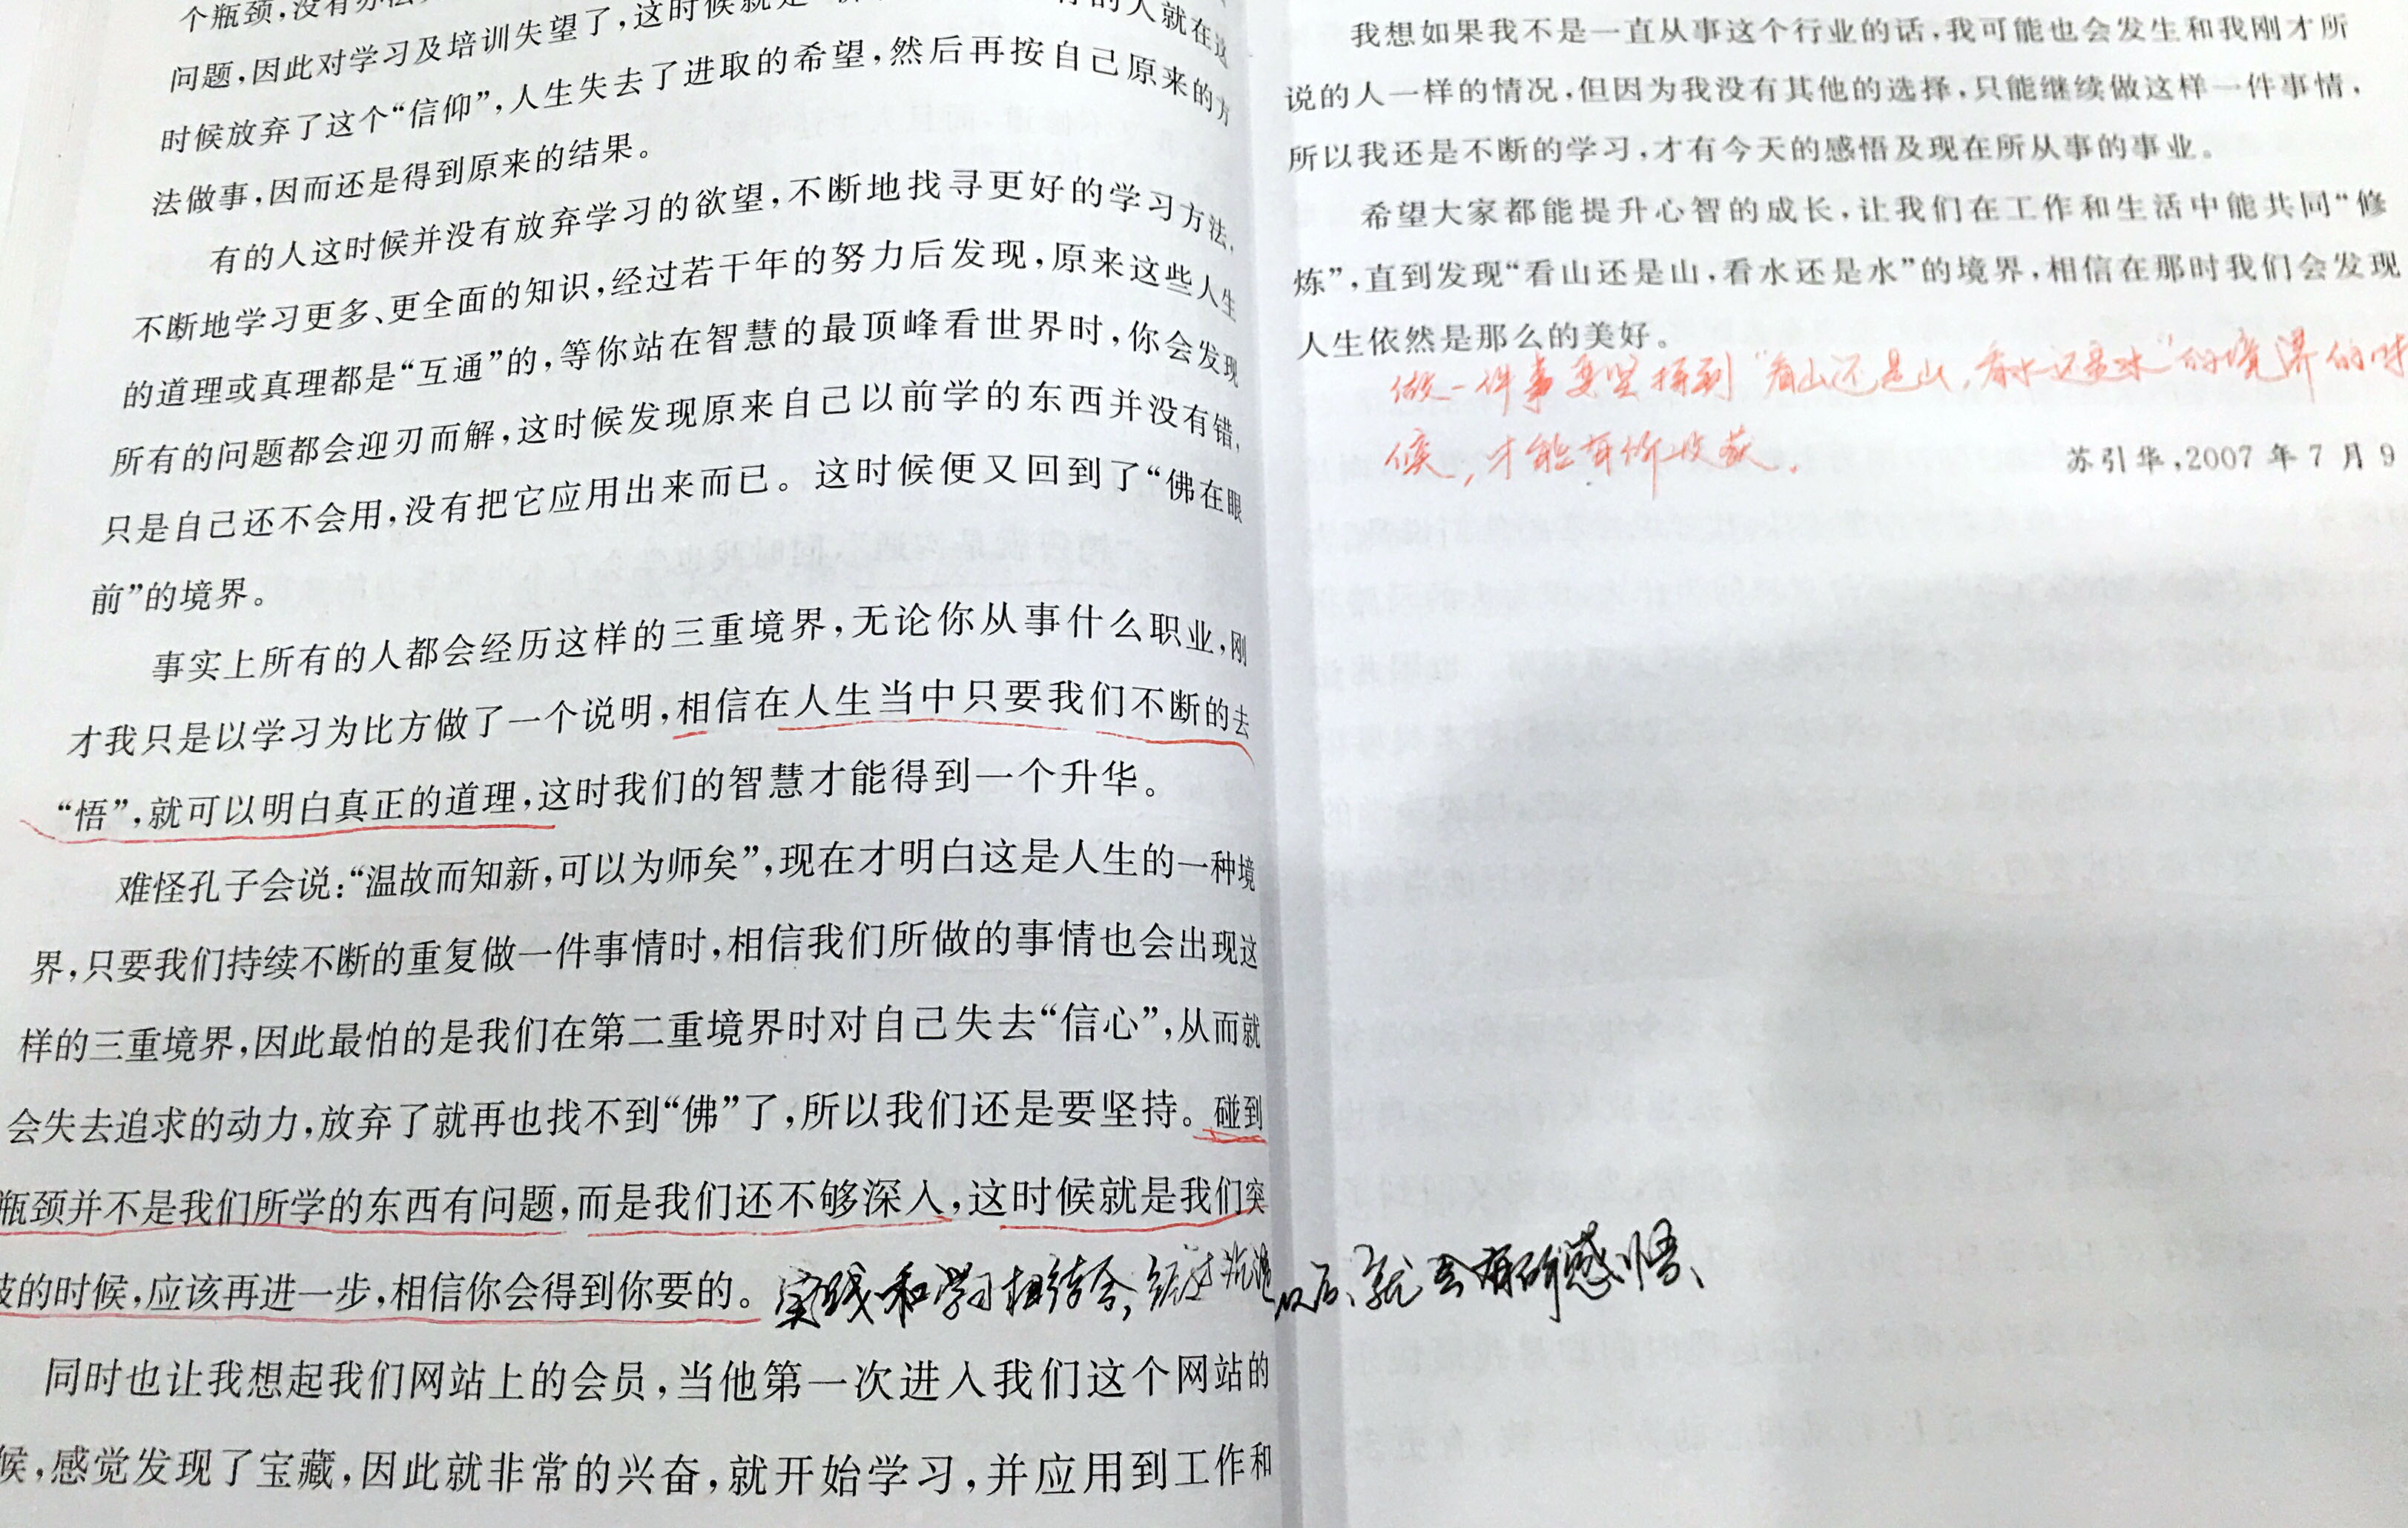 个瓶颈,没有办法
问题,因此对学习及培训失望了,这时候就是 的人就在这
时候放弃了这个“信仰”,人生失去了进取的希望,然后再按自己原来的方
法做事,因而还是得到原来的结果。
有的人这时候并没有放弃学习的欲望,不断地找寻更好的学习方法,
不断地学习更多、更全面的知识,经过若干年的努力后发现,原来这些人生
的道理或真理都是“互通”的,等你站在智慧的最顶峰看世界时,你会发现
所有的问题都会迎刃而解,这时候发现原来自己以前学的东西并没有错,
只是自己还不会用,没有把它应用出来而已。这时候便又回到了“佛在眼
前”的境界。
事实上所有的人都会经历这样的三重境界,无论你从事什么职业,刚
才我只是以学习为比方做了一个说明,相信在人生当中只要我们不断的去
“悟”,就可以明白真正的道理,这时我们的智慧才能得到一个升华。
难怪孔子会说:“温故而知新,可以为师矣”,现在才明白这是人生的一种境
界,只要我们持续不断的重复做一件事情时,相信我们所做的事情也会出现这
样的三重境界,因此最怕的是我们在第二重境界时对自己失去“信心”,从而就
会失去追求的动力,放弃了就再也找不到“佛”了,所以我们还是要坚持。碰到
瓶颈并不是我们所学的东西有问题,而是我们还不够深入,这时候就是我们突
破的时候,应该再进一步,相信你会得到你要的。
实践和学习相结合,经过沉淀以后、就会有所感悟、
同时也让我想起我们网站上的会员,当他第一次进入我们这个网站的
候,感觉发现了宝藏,因此就非常的兴奋,就开始学习,并应用到工作和
我想如果我不是一直从事这个行业的话,我可能也会发生和我刚才所
说的人一样的情况,但因为我没有其他的选择,只能继续做这样一件事情,
所以我还是不断的学习,才有今天的感悟及现在所从事的事业。
希望大家都能提升心智的成长,让我们在工作和生活中能共同“修
炼”,直到发现“看山还是山,看水还是水”的境界,相信在那时我们会发现
人生依然是那么的美好。
做一件事要坚持到“看山还是山,看水还是水”的境界的时
候,才能有所收获.
苏引华,2007年7月9